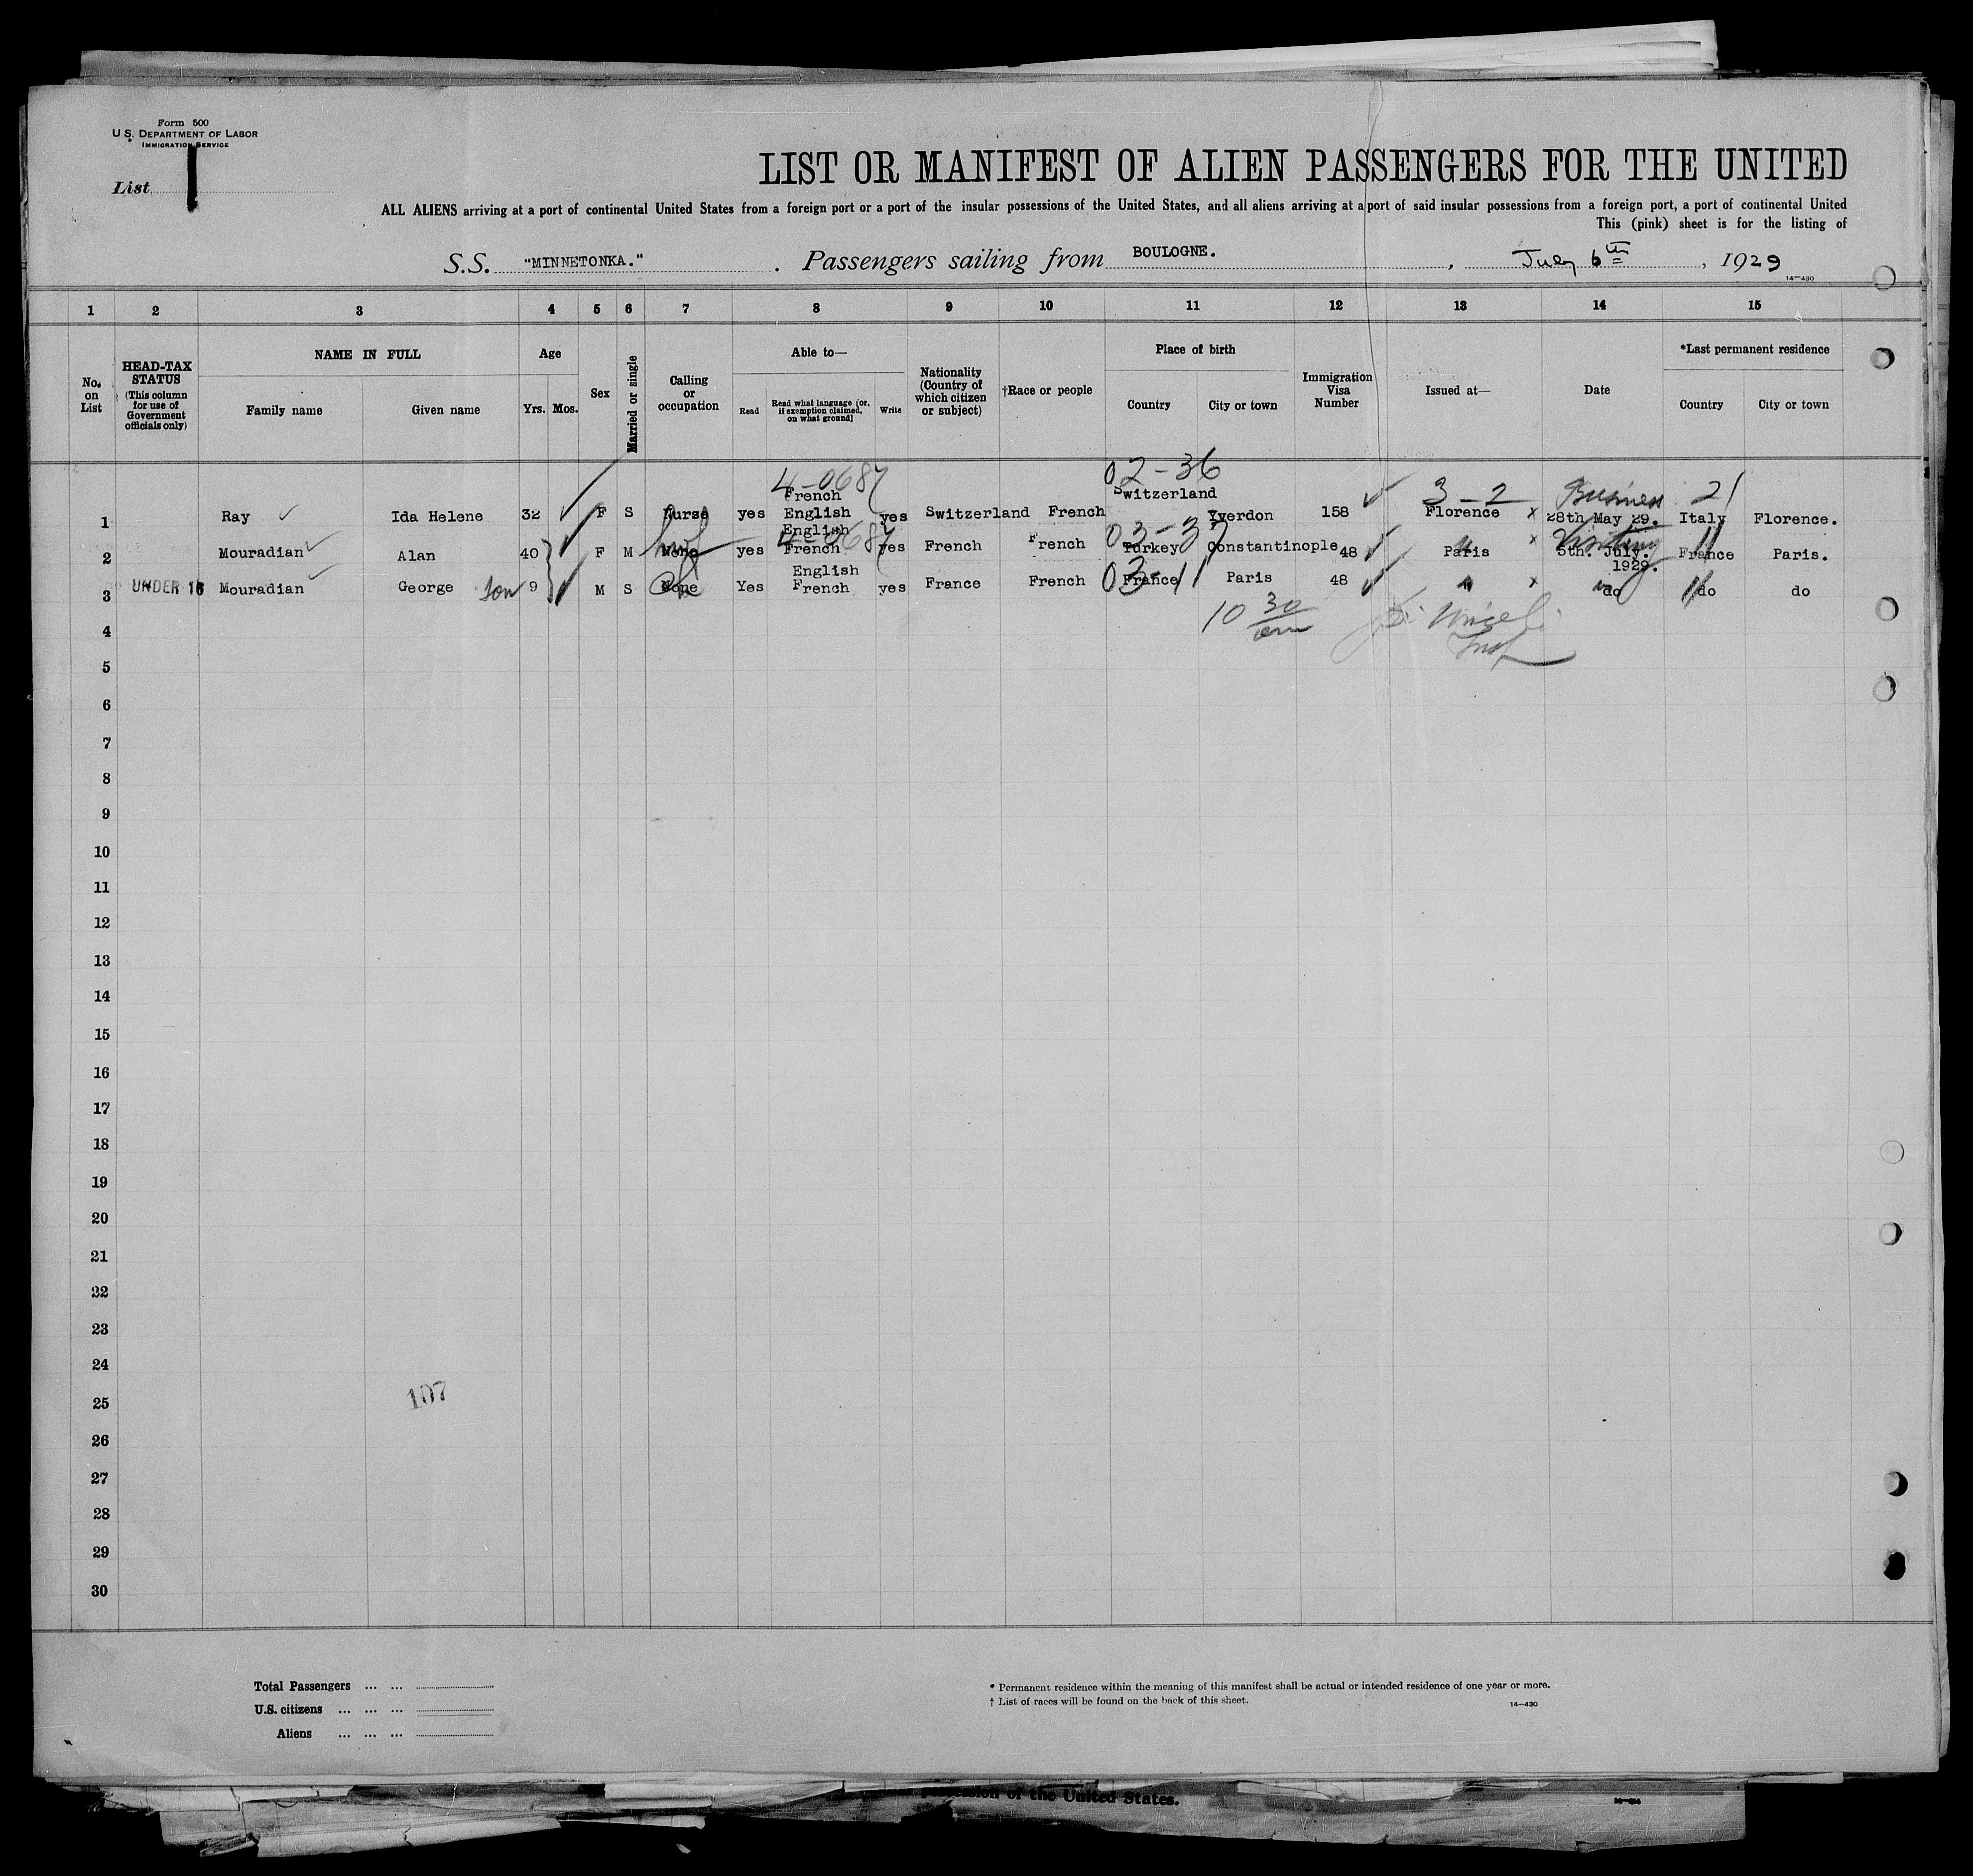 Form 500
U.S. DEPARTMENT OF LABOR
IMMIGRATION SERVICE
List 1
LIST OR MANIFEST OF ALIEN PASSENGERS FOR THE UNITED
ALL ALIENS arriving at a port of continental United States from a foreign port or a port of the insular possessions of the United States, and all aliens arriving at a port of said insular possessions from a foreign port, a port of continental United
This (pink) sheet is for the listing of
S.S. "MINNETONKA." . Passengers sailing from BOULOGNE. , July 6th , 1929
14—430
1 2 3 4 5 6 7 8 9 10 11 12 13 14 15
No. on List
HEAD-TAX STATUS (This column for use of Government officials only)
NAME IN FULL
Family name Given name
Age
Yrs. Mos.
Sex
Married or single
Calling or occupation
Able to—
Read Read what language [or, if exemption claimed, on what ground] Write
Nationality (Country of which citizen or subject)
†Race or people
Place of birth
Country City or town
Immigration Visa Number
Issued at—
Date
*Last permanent residence
Country City or town
4-0687 02-36 3-2 Business 21
1 Ray Ida Helene 32 F S Nurse yes French English yes Switzerland French Switzerland Yverdon 158 Florence x 28th May 29. Italy Florence.
4-0687 03-37 Visiting 11
2 Mouradian Alan 40 F M None yes English French yes French French Turkey Constantinople 48 Paris x 5th. July. 1929. France Paris.
03-11 " 11
3 UNDER 16 Mouradian George son 9 M S None Yes English French yes France French France Paris 48 " x do do do
4 10 30
5
6
7
8
9
10
11
12
13
14
15
16
17
18
19
20
21
22
23
24
25 107
26
27
28
29
30
Total Passengers ... ...
U.S. citizens ... ... ...
Aliens ... ... ...
* Permanent residence within the meaning of this manifest shall be actual or intended residence of one year or more.
† List of races will be found on the back of this sheet.
14—430
of the United States.